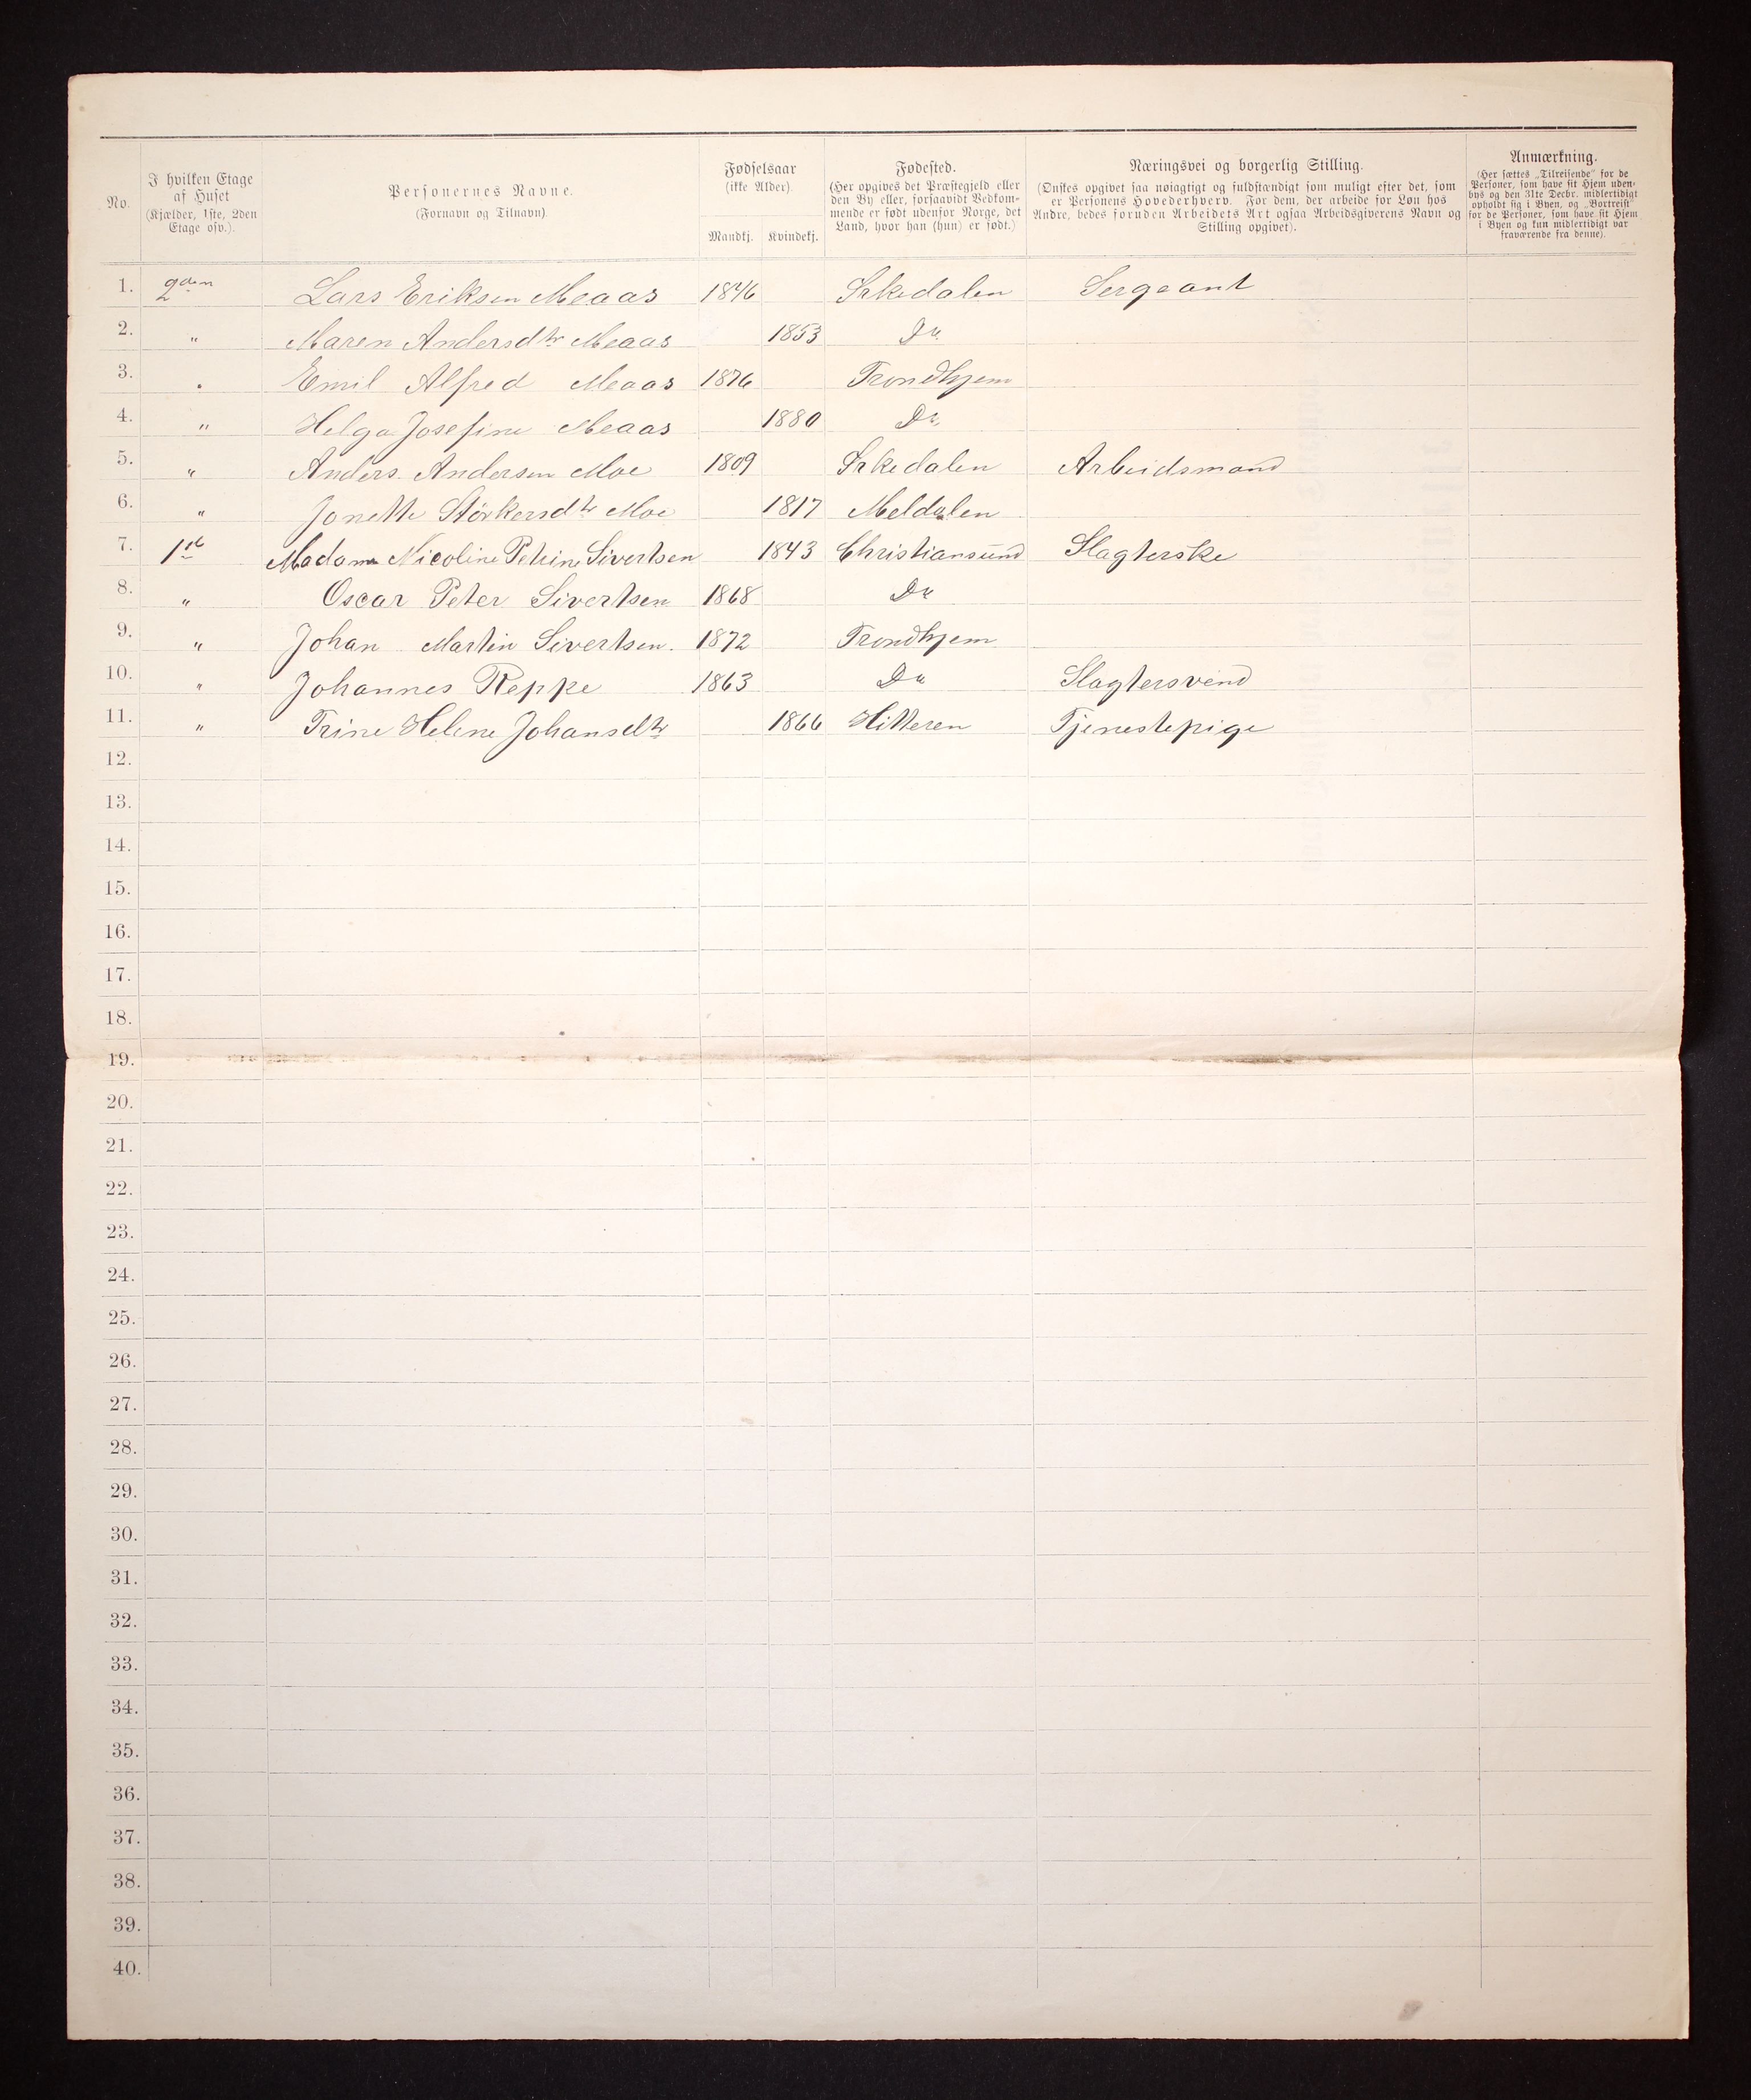 No.
I hvilken Etage
af Huset
(Kjælder, 1ste, 2den
Etage osv.).
Personernes Navne.
(Fornavn og Tilnavn)
Fødselsaar
(ikke Alder)
Mandkj. Kvindekj.
Fødested.
(Her opgives det Præstegjeld eller
den By eller, forsaavidt Vedkom-
mende er født udenfor Norge, det
Land, hvor han (hun) er født.)
Næringsvei og borgerlig Stilling.
(Ønskes opgivet saa nøiagtigt og fuldstændigt som muligt efter det, som
er Personens Hovederhverv. For dem, der arbeide for Løn hos
Andre, bedes foruden Arbeidets Art ogsaa Arbeidsgiverens Navn og
Stilling opgivet).
Anmærkning.
(Her sættes „Tilreisende" for de
Personer, som have sit Hjem uden-
bys og den 31te Decbr. midlertidigt
opholdt sig i Byen, og „Bortreist"
for de Personer, som have sit Hjem
i Byen og kun midlertidigt var
fraværende fra denne).
1. 2den Lars Eriksen Meaas 1846 Srkedalen Sergeant
2. " Maren Andersdtr Meaas 1853 Do
3. " Emil Alfred Meaas 1876 Trondhjem
4. " Helga Josefine Meaas 1880 Do
5. " Anders Andersen Moe 1809 Srkedalen Arbeidsmand
6. " Jonette Størkersdtr Moe 1817 Meldalen
7. 1ste Madam Nicoline Petrine Sivertsen 1843 Christiansund Slagterske
8. " Oscar Peter Sivertsen 1868 Do
9. " Johan Martin Sivertsen. 1872 Trondhjem
10. " Johannes Reppe 1863 Do Slagtersvend
11. " Trine Helene Johansdtr 1866 Hitteren Tjenestepige
12.
13.
14.
15.
16.
17.
18.
19.
20.
21.
22.
23.
24.
25.
26.
27.
28.
29.
30.
31.
32.
33.
34.
35.
36.
37.
38.
39.
40.